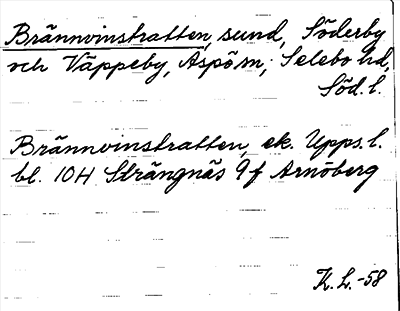 Brännvinstratten, sund, Söderby
och Väppeby, Aspö sn, Selebo hd,
Söd. l.
Brännvinstratten, ek. Upps. l.
bl. 10H Strängnäs 9f Arnöberg
K. L. -58